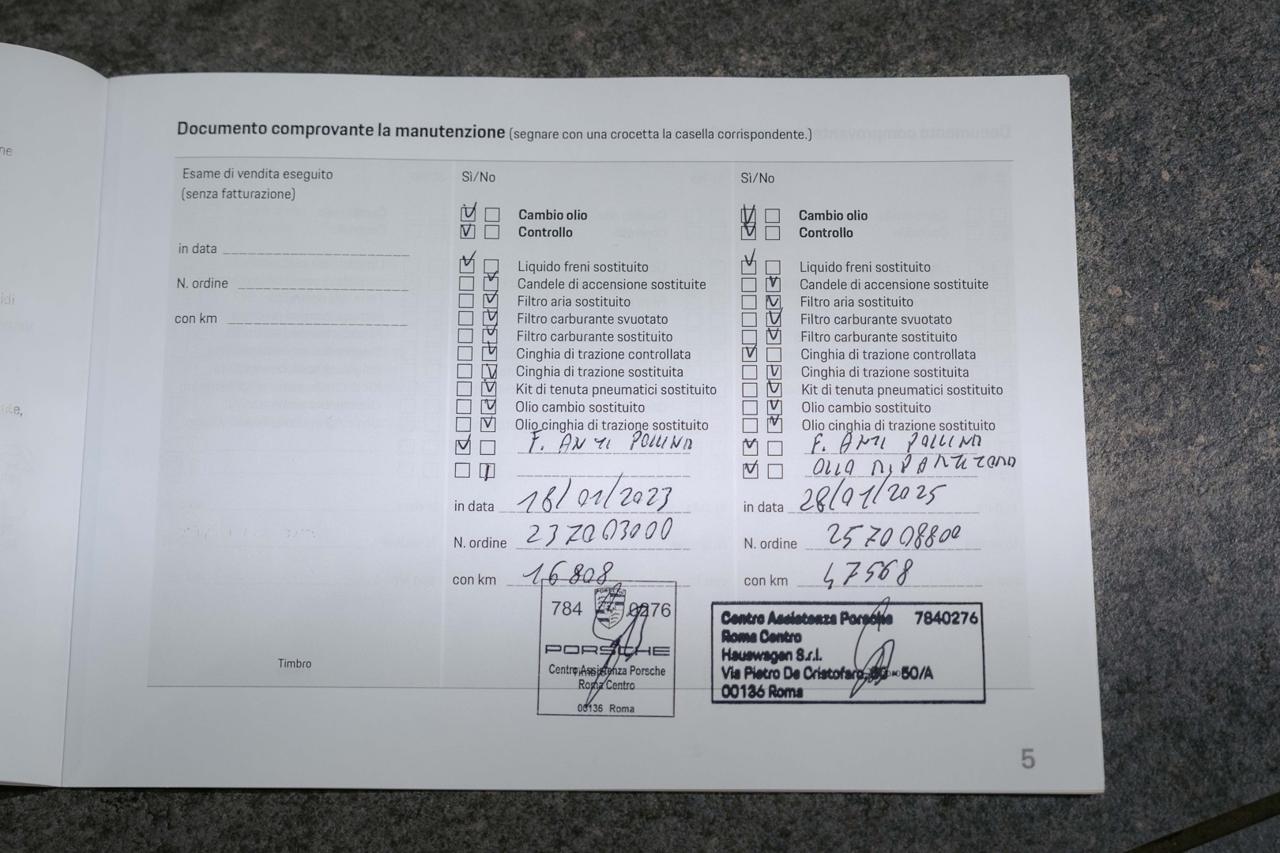 Documento comprovante la manutenzione (segnare con una crocetta la casella corrispondente.)
Esame di vendita eseguito
(senza fatturazione)
in data
N. ordine
con km
Timbro
Sì/No
Cambio olio
Controllo
Liquido freni sostituito
Candele di accensione sostituite
Filtro aria sostituito
Filtro carburante svuotato
Filtro carburante sostituito
Cinghia di trazione controllata
Cinghia di trazione sostituita
Kit di tenuta pneumatici sostituito
Olio cambio sostituito
Olio cinghia di trazione sostituito
F. ANTI POLLINE
in data 18/01/2023
N. ordine 237003000
con km 16808
784 0276
PORSCHE
Centro Assistenza Porsche
Roma Centro
00136 Roma
Sì/No
Cambio olio
Controllo
Liquido freni sostituito
Candele di accensione sostituite
Filtro aria sostituito
Filtro carburante svuotato
Filtro carburante sostituito
Cinghia di trazione controllata
Cinghia di trazione sostituita
Kit di tenuta pneumatici sostituito
Olio cambio sostituito
Olio cinghia di trazione sostituito
F. ANTI POLLINE
OLIO RIPARTITORE
in data 28/01/2025
N. ordine 257008800
con km 47568
Centro Assistenza Porsche 7840276
Roma Centro
Hauswagen S.r.l.
Via Pietro De Cristofaro, 50/A
00136 Roma
5